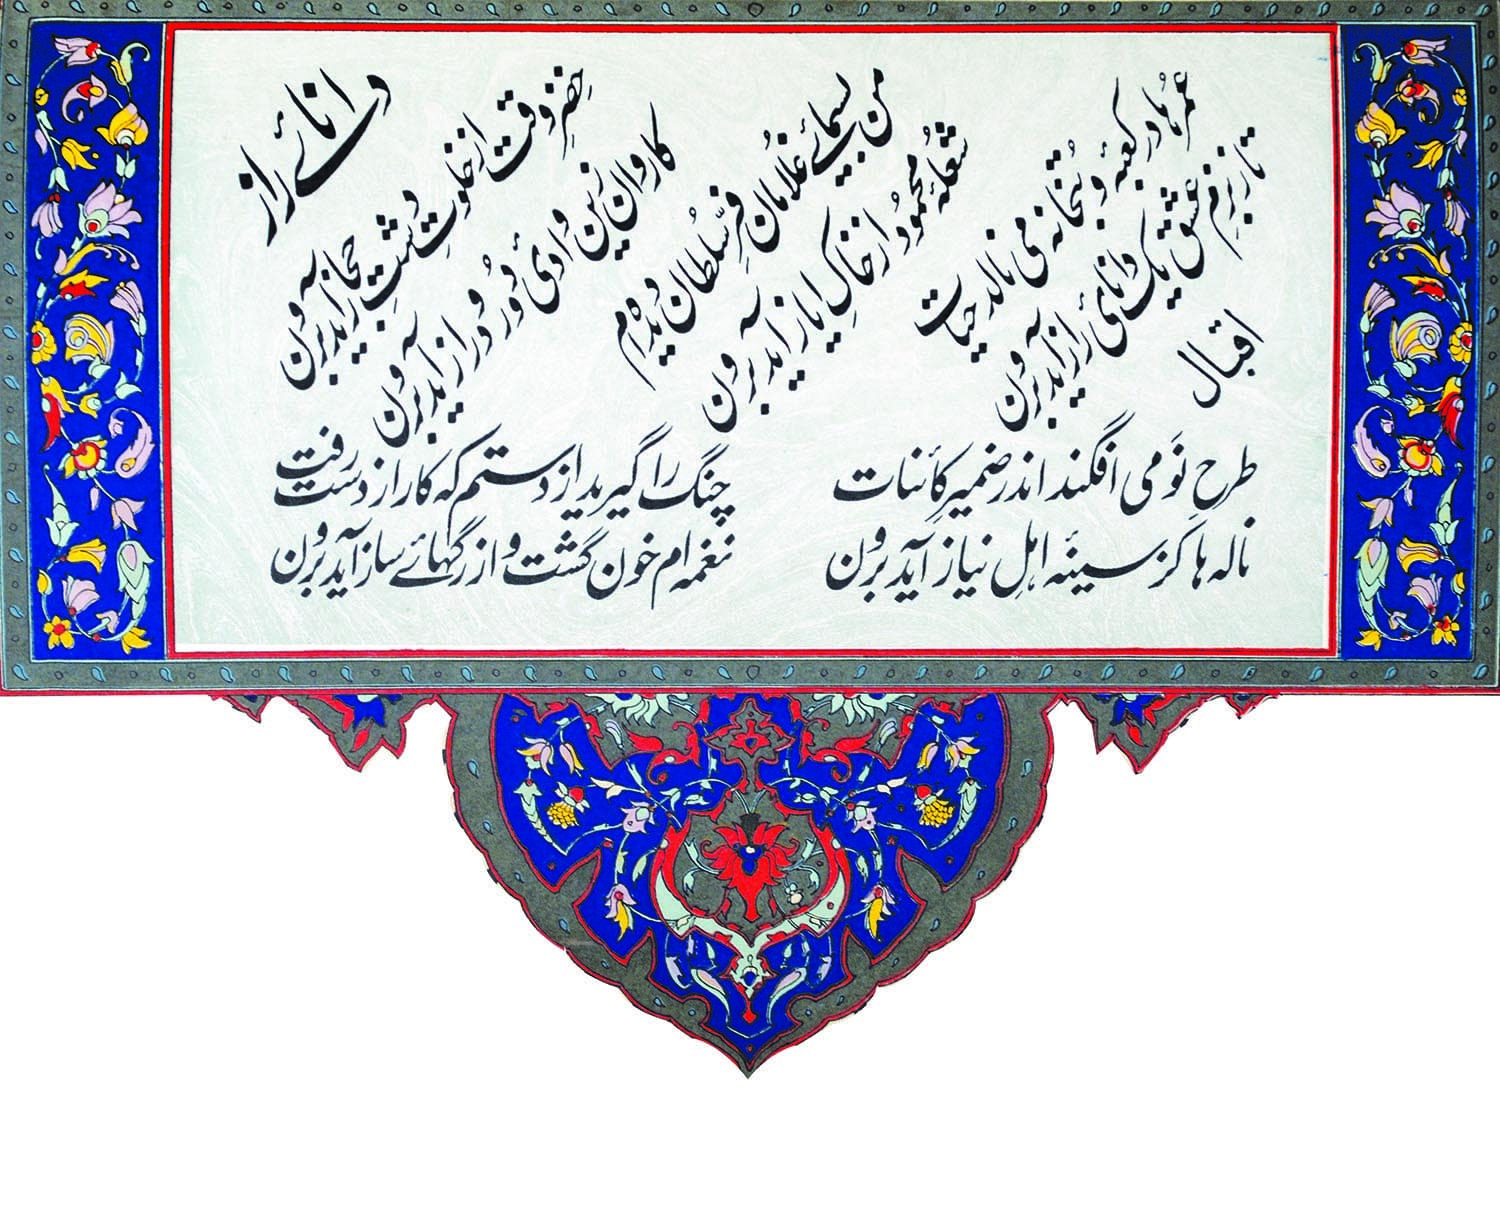 دانائے راز
خضرِ وقت از خلوتِ دشتِ حجاز آید برون
کاروان زین وادیٔ دُور و دراز آید برون
من بسیمائے غلامان فرِّ سلطان دیده‌ام
شعلهٔ محمود از خاکِ ایاز آید برون
عمرها در کعبه و بتخانه می نالد حیات
تا ز بزمِ عشق یک دانائ راز آید برون
اقبال
طرحِ نَو می افگند اندر ضمیرِ کائنات
ناله ها کز سینهٔ اهلِ نیاز آید برون
چنگ را گیرید از دستم که کار از دست رفت
نغمه ام خون گشت و از رگهائے ساز آید برون